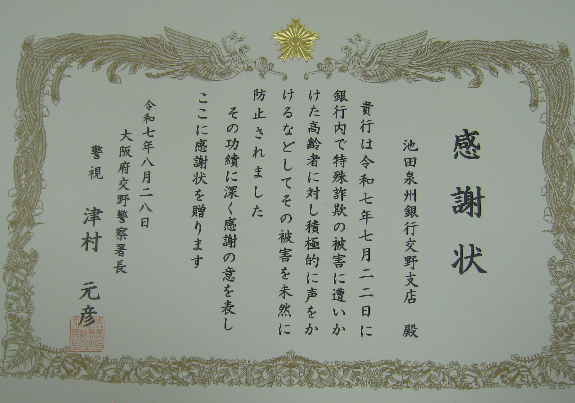 感謝状
池田泉州銀行交野支店 殿
貴行は令和七年七月二二日に
銀行内で特殊詐欺の被害に遭いか
けた高齢者に対し積極的に声をか
けるなどしてその被害を未然に
防止されました
その功績に深く感謝の意を表し
ここに感謝状を贈ります
令和七年八月二八日
大阪府交野警察署長
警視 津村 元彦